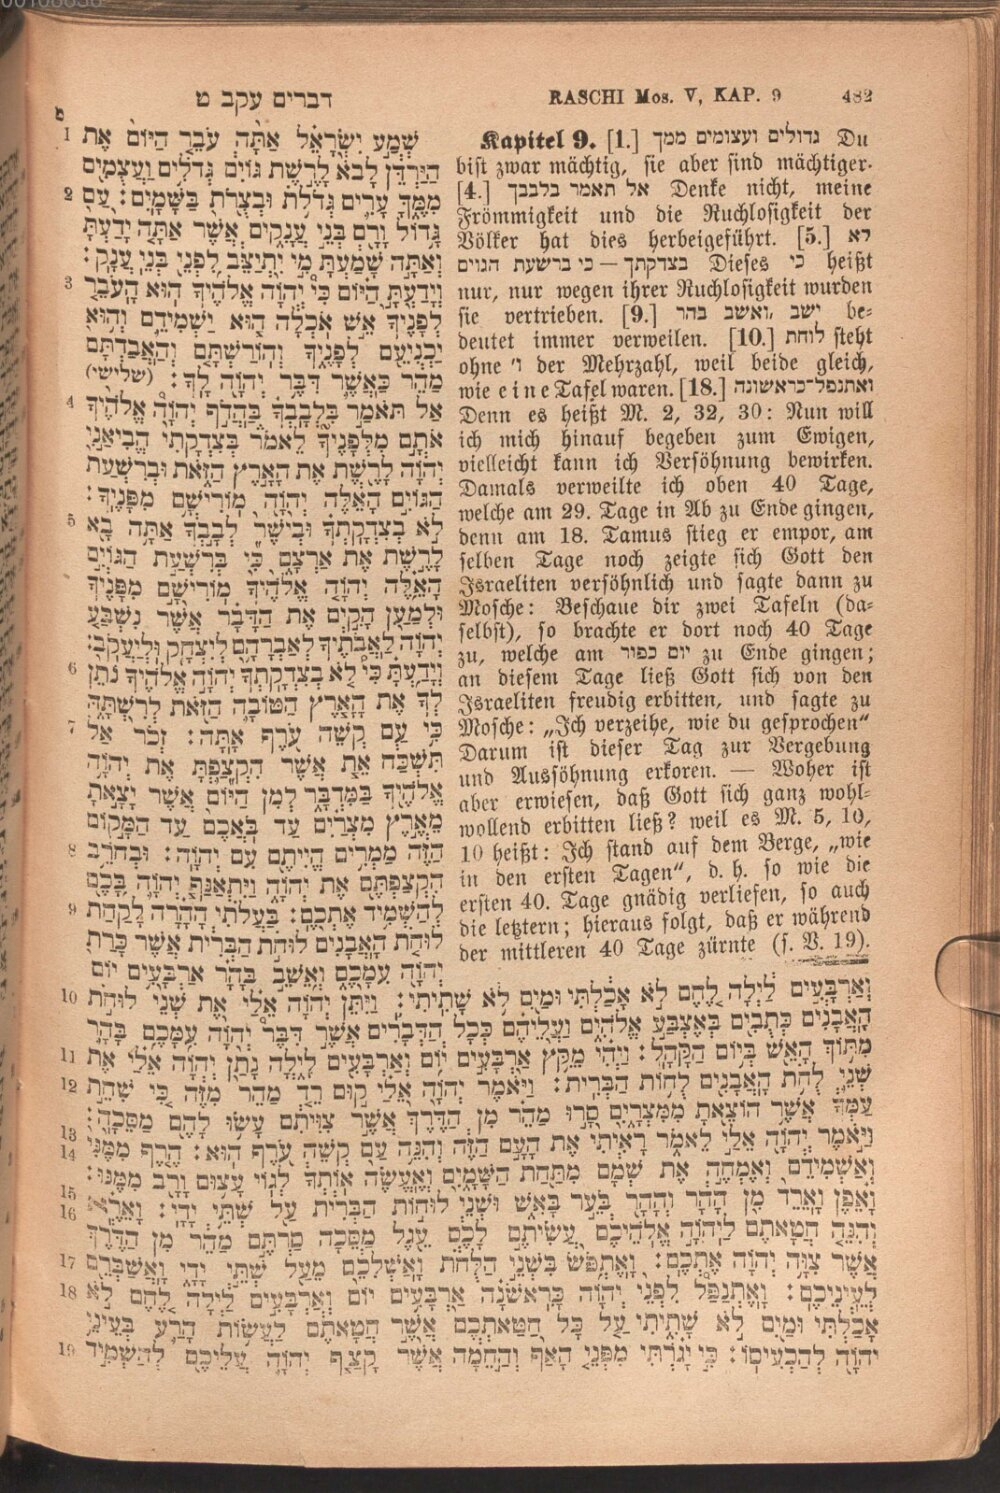 דברים עקב ט
RASCHI Mos. V, KAP. 9 482
Kapitel 9. [1.] גדולים ועצומים ממך Du
bist zwar mächtig, sie aber sind mächtiger.
[4.] אל תאמר בלבבך Denke nicht, meine
Frömmigkeit und die Ruchlosigkeit der
Völker hat dies herbeigeführt. [5.] לא
בצדקתך — כי ברשעת הגוים כי Dieses heißt
nur, nur wegen ihrer Ruchlosigkeit wurden
sie vertrieben. [9.] ואשב בהר, ישב be-
deutet immer verweilen. [10.] לוחת steht
ohne 'ו der Mehrzahl, weil beide gleich,
wie eine Tafel waren. [18.] ואתנפל-כראשונה
Denn es heißt M. 2, 32, 30: Nun will
ich mich hinauf begeben zum Ewigen,
vielleicht kann ich Versöhnung bewirken.
Damals verweilte ich oben 40 Tage,
welche am 29. Tage in Ab zu Ende gingen,
denn am 18. Tamus stieg er empor, am
selben Tage noch zeigte sich Gott den
Israeliten versöhnlich und sagte dann zu
Mosche: Beschaue dir zwei Tafeln (da-
selbst), so brachte er dort noch 40 Tage
zu, welche am יום כפור zu Ende gingen;
an diesem Tage ließ Gott sich von den
Israeliten freudig erbitten, und sagte zu
Mosche: „Ich verzeihe, wie du gesprochen“
Darum ist dieser Tag zur Vergebung
und Aussöhnung erkoren. — Woher ist
aber erwiesen, daß Gott sich ganz wohl-
wollend erbitten ließ? weil es M. 5, 10,
10 heißt: Ich stand auf dem Berge, „wie
in den ersten Tagen“, d. h. so wie die
ersten 40. Tage gnädig verliefen, so auch
die letztern; hieraus folgt, daß er während
der mittleren 40 Tage zürnte (s. V. 19).
ט
1 שְׁמַע יִשְׂרָאֵל אַתָּה עֹבֵר הַיּוֹם אֶת
הַיַּרְדֵּן לָבֹא לָרֶשֶׁת גּוֹיִם גְּדֹלִים וַעֲצֻמִים
2 מִמֶּךָּ עָרִים גְּדֹלֹת וּבְצֻרֹת בַּשָּׁמָיִם: עַם
גָּדוֹל וָרָם בְּנֵי עֲנָקִים אֲשֶׁר אַתָּה יָדַעְתָּ
וְאַתָּה שָׁמַעְתָּ מִי יִתְיַצֵּב לִפְנֵי בְּנֵי עֲנָק:
3 וְיָדַעְתָּ הַיּוֹם כִּי יְהוָֹה אֱלֹהֶיךָ הוּא הָעֹבֵר
לְפָנֶיךָ אֵשׁ אֹכְלָה הוּא יַשְׁמִידֵם וְהוּא
יַכְנִיעֵם לְפָנֶיךָ וְהוֹרַשְׁתָּם וְהַאֲבַדְתָּם
מַהֵר כַּאֲשֶׁר דִּבֶּר יְהוָֹה לָךְ: (שלישי)
4 אַל תֹּאמַר בִּלְבָבְךָ בַּהֲדֹף יְהוָֹה אֱלֹהֶיךָ
אֹתָם מִלְּפָנֶיךָ לֵאמֹר בְּצִדְקָתִי הֱבִיאַנִי
יְהוָֹה לָרֶשֶׁת אֶת הָאָרֶץ הַזֹּאת וּבְרִשְׁעַת
הַגּוֹיִם הָאֵלֶּה יְהוָֹה מוֹרִישָׁם מִפָּנֶיךָ:
5 לֹא בְצִדְקָתְךָ וּבְיֹשֶׁר לְבָבְךָ אַתָּה בָא
לָרֶשֶׁת אֶת אַרְצָם כִּי בְּרִשְׁעַת הַגּוֹיִם
הָאֵלֶּה יְהוָֹה אֱלֹהֶיךָ מוֹרִישָׁם מִפָּנֶיךָ
וּלְמַעַן הָקִים אֶת הַדָּבָר אֲשֶׁר נִשְׁבַּע
יְהוָֹה לַאֲבֹתֶיךָ לְאַבְרָהָם לְיִצְחָק וּלְיַעֲקֹב:
6 וְיָדַעְתָּ כִּי לֹא בְצִדְקָתְךָ יְהוָֹה אֱלֹהֶיךָ נֹתֵן
לְךָ אֶת הָאָרֶץ הַטּוֹבָה הַזֹּאת לְרִשְׁתָּהּ
7 כִּי עַם קְשֵׁה עֹרֶף אָתָּה: זְכֹר אַל
תִּשְׁכַּח אֵת אֲשֶׁר הִקְצַפְתָּ אֶת יְהוָֹה
אֱלֹהֶיךָ בַּמִּדְבָּר לְמִן הַיּוֹם אֲשֶׁר יָצָאתָ
מֵאֶרֶץ מִצְרַיִם עַד בֹּאֲכֶם עַד הַמָּקוֹם
8 הַזֶּה מַמְרִים הֱיִיתֶם עִם יְהוָֹה: וּבְחֹרֵב
הִקְצַפְתֶּם אֶת יְהוָֹה וַיִּתְאַנַּף יְהוָֹה בָּכֶם
9 לְהַשְׁמִיד אֶתְכֶם: בַּעֲלֹתִי הָהָרָה לָקַחַת
לוּחֹת הָאֲבָנִים לוּחֹת הַבְּרִית אֲשֶׁר כָּרַת
יְהוָֹה עִמָּכֶם וָאֵשֵׁב בָּהָר אַרְבָּעִים יוֹם
10 וְאַרְבָּעִים לַיְלָה לֶחֶם לֹא אָכַלְתִּי וּמַיִם לֹא שָׁתִיתִי: וַיִּתֵּן יְהוָֹה אֵלַי אֶת שְׁנֵי לוּחֹת
הָאֲבָנִים כְּתֻבִים בְּאֶצְבַּע אֱלֹהִים וַעֲלֵיהֶם כְּכָל הַדְּבָרִים אֲשֶׁר דִּבֶּר יְהוָֹה עִמָּכֶם בָּהָר
11 מִתּוֹךְ הָאֵשׁ בְּיוֹם הַקָּהָל: וַיְהִי מִקֵּץ אַרְבָּעִים יוֹם וְאַרְבָּעִים לָיְלָה נָתַן יְהוָֹה אֵלַי אֶת
12 שְׁנֵי לֻחֹת הָאֲבָנִים לֻחוֹת הַבְּרִית: וַיֹּאמֶר יְהוָֹה אֵלַי קוּם רֵד מַהֵר מִזֶּה כִּי שִׁחֵת
עַמְּךָ אֲשֶׁר הוֹצֵאתָ מִמִּצְרָיִם סָרוּ מַהֵר מִן הַדֶּרֶךְ אֲשֶׁר צִוִּיתִם עָשׂוּ לָהֶם מַסֵּכָה:
13
14 וַיֹּאמֶר יְהוָֹה אֵלַי לֵאמֹר רָאִיתִי אֶת הָעָם הַזֶּה וְהִנֵּה עַם קְשֵׁה עֹרֶף הוּא: הֶרֶף מִמֶּנִּי
וְאַשְׁמִידֵם וְאֶמְחֶה אֶת שְׁמָם מִתַּחַת הַשָּׁמָיִם וְאֶעֱשֶׂה אוֹתְךָ לְגוֹי עָצוּם וָרָב מִמֶּנּוּ:
15
16 וָאֵפֶן וָאֵרֵד מִן הָהָר וְהָהָר בֹּעֵר בָּאֵשׁ וּשְׁנֵי לוּחוֹת הַבְּרִית עַל שְׁתֵּי יָדָי: וָאֵרֶא
וְהִנֵּה חֲטָאתֶם לַיהוָֹה אֱלֹהֵיכֶם עֲשִׂיתֶם לָכֶם עֵגֶל מַסֵּכָה סַרְתֶּם מַהֵר מִן הַדֶּרֶךְ
17 אֲשֶׁר צִוָּה יְהוָֹה אֶתְכֶם: וָאֶתְפֹּשׂ בִּשְׁנֵי הַלֻּחֹת וָאַשְׁלִכֵם מֵעַל שְׁתֵּי יָדָי וָאֲשַׁבְּרֵם
18 לְעֵינֵיכֶם: וָאֶתְנַפַּל לִפְנֵי יְהוָֹה כָּרִאשֹׁנָה אַרְבָּעִים יוֹם וְאַרְבָּעִים לַיְלָה לֶחֶם לֹא
אָכַלְתִּי וּמַיִם לֹא שָׁתִיתִי עַל כָּל חַטַּאתְכֶם אֲשֶׁר חֲטָאתֶם לַעֲשׂוֹת הָרַע בְּעֵינֵי
19 יְהוָֹה לְהַכְעִיסוֹ: כִּי יָגֹרְתִּי מִפְּנֵי הָאַף וְהַחֵמָה אֲשֶׁר קָצַף יְהוָֹה עֲלֵיכֶם לְהַשְׁמִיד